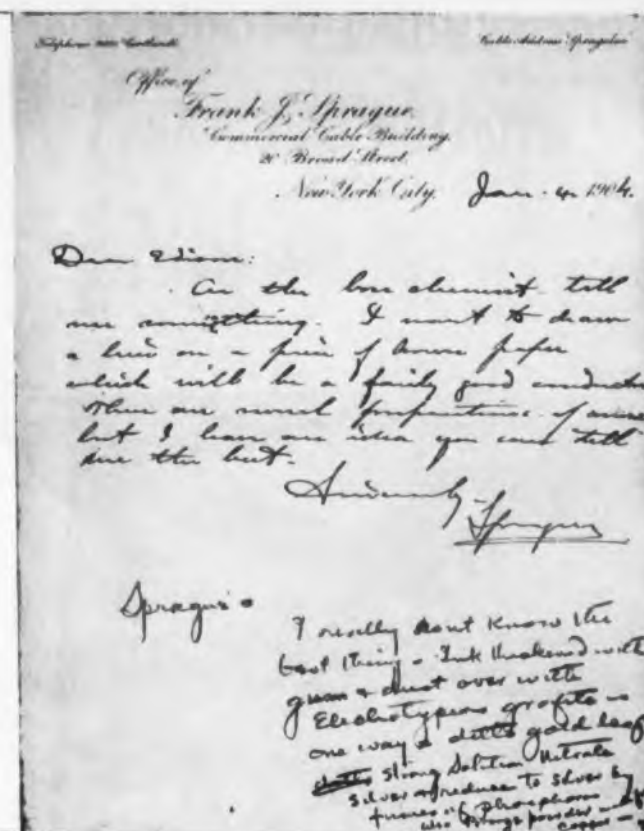 Telephone Cortlandt
Cable Address "Spraguelec"
Office of
Frank J. Sprague,
Commercial Cable Building,
20 Broad Street,
New York City, Jan. 4, 1904.
Dear Edison:
As the boss chemist tell
me something. I want to draw
a line on a piece of paper
which will be a fairly good conductor
There are several of
but I have an idea you can tell
me the best.
Sincerely
Sprague
Sprague
I really dont know the
best thing - Ink thickened with
gum & dust over with
Electrotypers grafite is
one way & ditto gold leaf
Strong Solution Nitrate
Silver & reduce to silver by
fumes of phosphorus
use powder